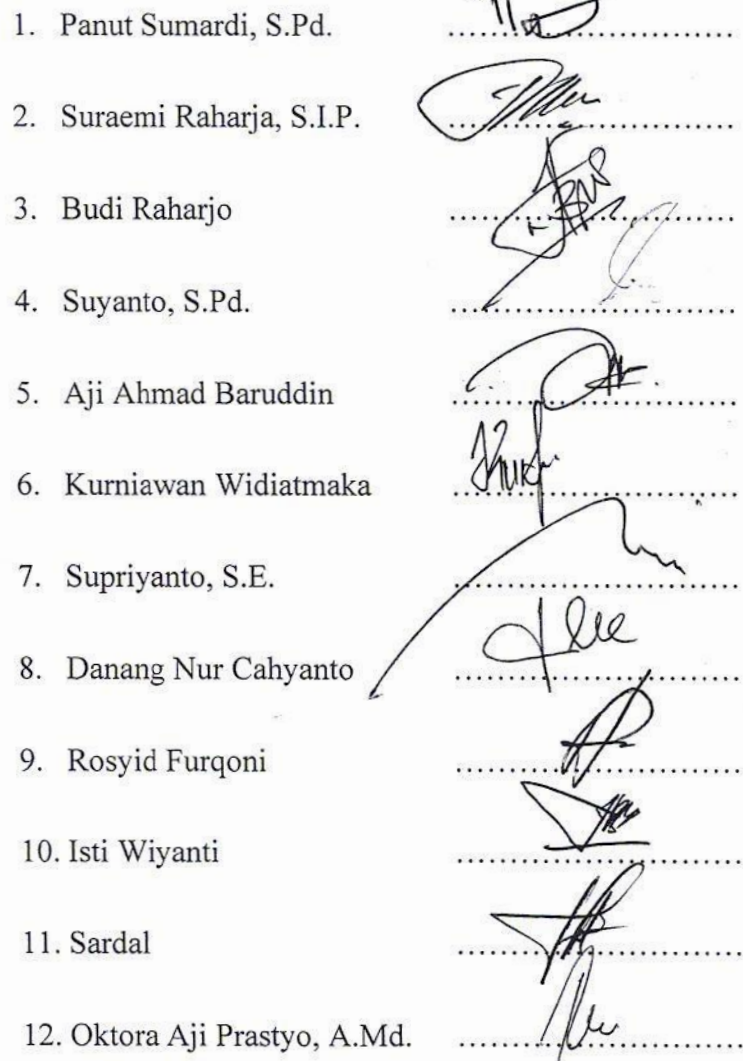 1. Panut Sumardi, S.Pd. ..............................
2. Suraemi Raharja, S.I.P. ..............................
3. Budi Raharjo ..............................
4. Suyanto, S.Pd. ..............................
5. Aji Ahmad Baruddin ..............................
6. Kurniawan Widiatmaka ..............................
7. Supriyanto, S.E. ..............................
8. Danang Nur Cahyanto ..............................
9. Rosyid Furqoni ..............................
10. Isti Wiyanti ..............................
11. Sardal ..............................
12. Oktora Aji Prastyo, A.Md. ..............................